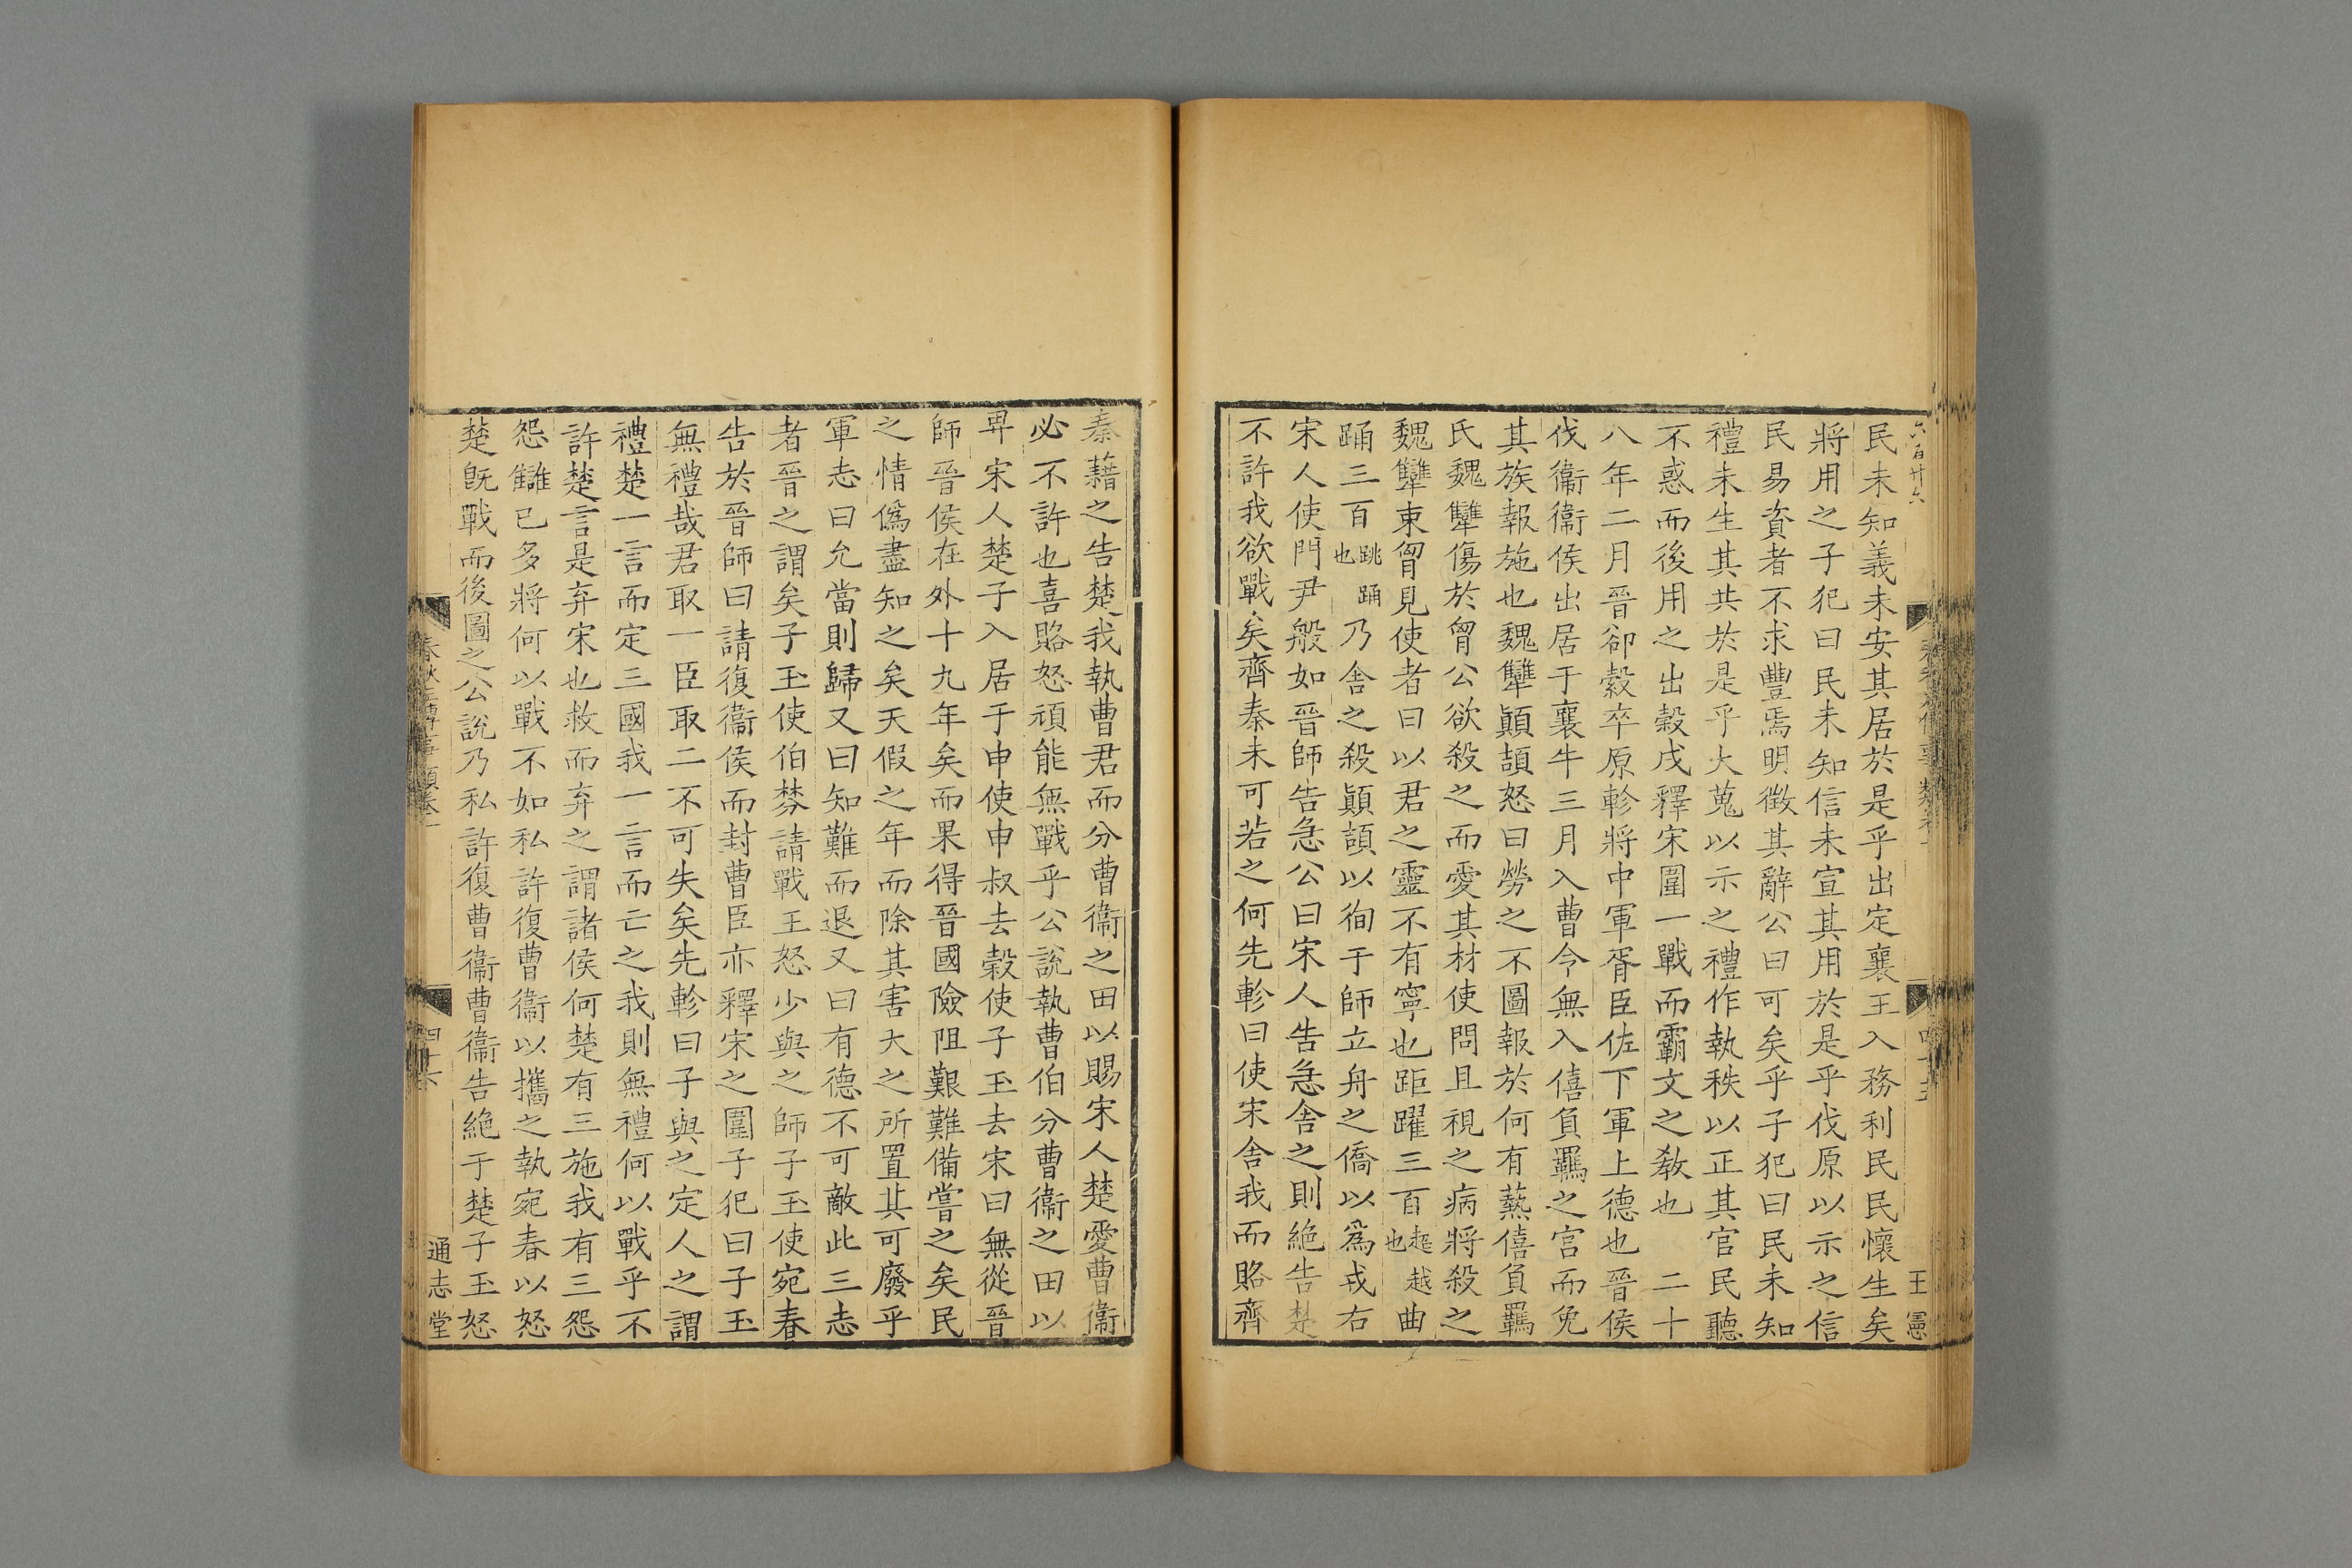 民未知義未安其居於是乎出定襄王入務利民民懷生矣
將用之子犯曰民未知信未宣其用於是乎伐原以示之信
民易資者不求豐焉明徵其辭公曰可矣乎子犯曰民未知
禮未生其共於是乎大蒐以示之禮作執秩以正其官民聽
不惑而後用之出穀戍釋宋圍一戰而霸文之敎也　二十
八年二月晉郤縠卒原軫將中軍胥臣佐下軍上德也晉侯
伐衞衞侯出居于襄牛三月入曹令無入僖負羈之宮而免
其族報施也魏犨顚頡怒曰勞之不圖報於何有爇僖負羈
氏魏犨傷於胷公欲殺之而愛其材使問且視之病將殺之
魏犨束胷見使者曰以君之靈不有寧也距躍三百超越也曲
踊三百跳踊也乃舍之殺顚頡以徇于師立舟之僑以爲戎右
宋人使門尹般如晉師告急公曰宋人告急舍之則絶告楚
不許我欲戰矣齊秦未可若之何先軫曰使宋舍我而賂齊
秦藉之告楚我執曹君而分曹衞之田以賜宋人楚愛曹衞
必不許也喜賂怒頑能無戰乎公說執曹伯分曹衞之田以
畀宋人楚子入居于申使申叔去穀使子玉去宋曰無從晉
師晉侯在外十九年矣而果得晉國險阻艱難備嘗之矣民
之情僞盡知之矣天假之年而除其害天之所置其可廢乎
軍志曰允當則歸又曰知難而退又曰有德不可敵此三志
者晉之謂矣子玉使伯棼請戰王怒少與之師子玉使宛春
告於晉師曰請復衞侯而封曹臣亦釋宋之圍子犯曰子玉
無禮哉君取一臣取二不可失矣先軫曰子與之定人之謂
禮楚一言而定三國我一言而亡之我則無禮何以戰乎不
許楚言是弃宋也救而弃之謂諸侯何楚有三施我有三怨
怨讎已多將何以戰不如私許復曹衞以攜之執宛春以怒
楚旣戰而後圖之公說乃私許復曹衞曹衞告絶于楚子玉怒
春秋五傳事類卷一
四十六
通志堂
六百廿六
王憲